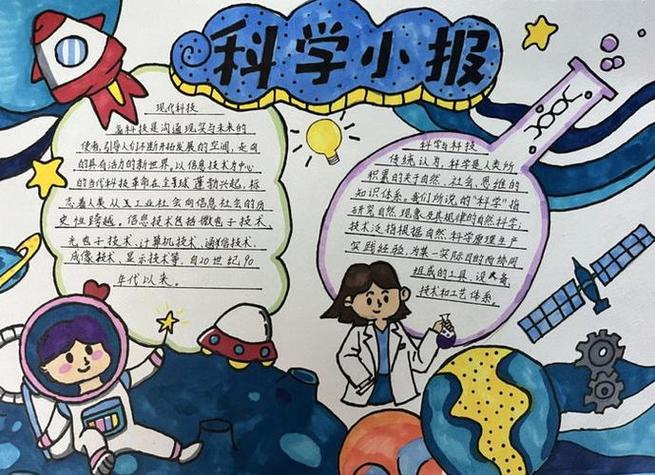 科学小报
现代科技
高科技是沟通现实与未来的
使者,引导人们不断开拓发展的空间,走向
的具有活力的新世界。以信息技术为中心
的当代科技革命在全球蓬勃兴起,标
志着人类从工业社会向信息社会的历
史性跨越。信息技术包括微电子技术、
光电子技术、计算机技术、通信技术、
成像技术、显示技术等,自20世纪90
年代以来。
科学与科技
传统认为,科学是人类所
积累的关于自然、社会、思维的
知识体系。我们所说的“科学”指
研究自然现象及其规律的自然科学;
技术泛指根据自然科学原理生产
实践经验,为某一实际目的而协同
组成的工具、设备、
技术和工艺体系。